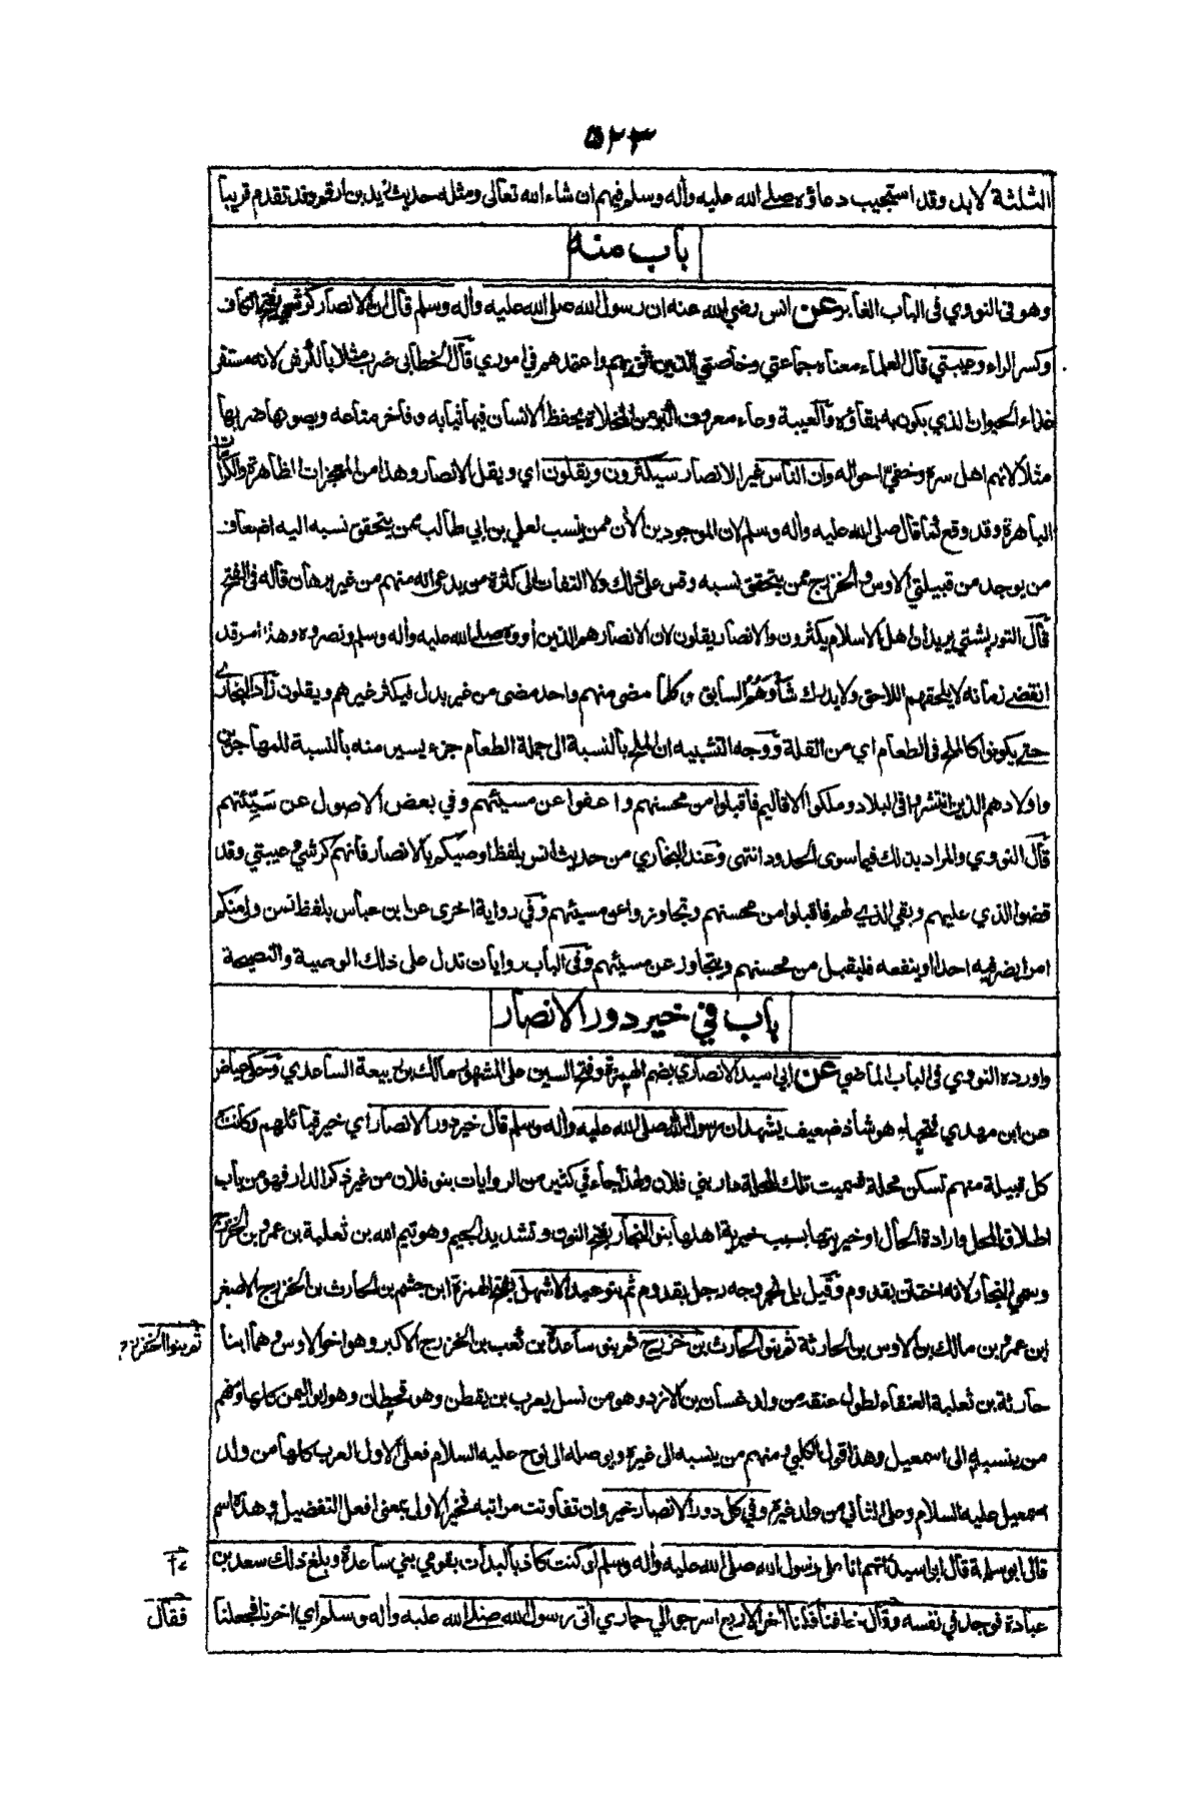 ٥٢٣
الثلثة لابد وقد استجيب دعاؤه صلى الله عليه وأله وسلم فيهم ان شاء الله تعالى ومثله حديث زيد بن ارقم وقد تقدم قريبا
باب منه
وهو في النووي في الباب الغابر عن انس رضي الله عنه ان رسول الله صلى الله عليه وأله وسلم قال ان الانصار كرشي بفتح الكاف
وكسر الراء وعيبتي قال العلماء معناه جماعتي وخاصتي الذين اثق بهم واعتمدهم في اموري قال الخطابي ضرب مثلا بالكرش لانه مستقر
غذاء الحيوان الذي يكون به بقاؤه والعيبة وعاء معروف اكبر من المخلاة يحفظ الانسان فيها ثيابه وفاخر متاعه ويصونها ضربها
مثلا لانهم اهل سره وخفي احواله وان الناس غير الانصار سيكثرون ويقلون اي ويقل الانصار وهذا من المعجزات الظاهرة والكرامات
الباهرة وقد وقع كما قال صلى الله عليه وأله وسلم لان الموجودين الأن ممن ينسب لعلي بن ابي طالب ممن يتحقق نسبه اليه اضعاف
من يوجد من قبيلتي الاوس والخزرج ممن يتحقق نسبه وقس على ذلك ولا التفات الى كثرة من يدعي انه منهم من غير برهان قاله في الفتح
قال التوربشتي يريد ان اهل الاسلام يكثرون والانصار يقلون لان الانصار هم الذين أووه صلى الله عليه وأله وسلم ونصروه وهذا امر قد
انقضى زمانه لا يلحقهم اللاحق ولا يدرك شأوهم السابق وكلما مضى منهم واحد مضى من غير بدل فيكثر غيرهم ويقلون زاد البخاري
حتى يكونوا كالملح في الطعام اي من القلة ووجه التشبيه ان الملح بالنسبة الى جملة الطعام جزء يسير منه بالنسبة للمهاجرين
واولادهم الذين انتشروا في البلاد وملكوا الاقاليم فاقبلوا من محسنهم واعفوا عن مسيئهم وفي بعض الاصول عن سيئتهم
قال النووي والمراد بذلك فيما سوى الحدود انتهى وعند البخاري من حديث انس بلفظ اوصيكم بالانصار فانهم كرشي وعيبتي وقد
قضوا الذي عليهم وبقي الذي لهم فاقبلوا من محسنهم وتجاوزوا عن مسيئهم وفي رواية اخرى عن ابن عباس بلفظ فمن ولي منكم
امرا يضر فيه احدا او ينفعه فليقبل من محسنهم ويتجاوز عن مسيئهم وفي الباب روايات تدل على ذلك الوصية والنصيحة
باب في خير دور الانصار
واورده النووي في الباب الماضي عن ابي اسيد الانصاري بضم الهمزة وفتح السين على المشهور مالك بن ربيعة الساعدي وحكى عياض
عن ابن مهدي فتحها وهو شاذ ضعيف يشهد ان رسول الله صلى الله عليه وأله وسلم قال خير دور الانصار اي خير قبائلهم وكانت
كل قبيلة منهم تسكن محلة فسميت تلك المحلة دار بني فلان ولهذا جاء في كثير من الروايات بنو فلان من غير ذكر الدار فهو من باب
اطلاق المحل وارادة الحال او خيريتها بسبب خيرية اهلها بنو النجار بفتح النون وتشديد الجيم وهو تيم الله بن ثعلبة بن عمرو بن الخزرج
وسمي النجار لانه اختتن بقدوم وقيل بل نجر وجه رجل بقدوم ثم بنو عبد الاشهل بفتح الهمزة ابن جشم بن الحارث بن الخزرج الاصغر
ابن عمرو بن مالك بن الاوس بن الحارثة ثم بنو الحارث بن خزرج ثم بنو ساعدة بن كعب بن الخزرج الاكبر وهو اخو الاوس وهما ابنا
حارثة بن ثعلبة العنقاء لطول عنقه من ولد غسان بن الازد وهو من نسل يعرب بن يقطن وهو قحطان وهو ابو اليمن كلها ومنهم
من ينسبه الى اسمعيل وهذا قول الكلبي ومنهم من ينسبه الى غيره ويوصله الى نوح عليه السلام فعلى الاول العرب كلها من ولد
اسمعيل عليه السلام وعلى الثاني من ولد غيره وفي كل دور الانصار خير وان تفاوتت مراتبه فخير الاول بمعنى افعل التفضيل وهذه اسم
قال ابو سلمة قال ابو اسيد اتهم انا على رسول الله صلى الله عليه وأله وسلم لو كنت كاذبا لبدأت بقومي بني ساعدة وبلغ ذلك سعد بن
عبادة فوجد في نفسه وقال خلفنا فكنا أخر الاربع اسرجوا لي حماري أتي رسول الله صلى الله عليه وأله وسلم اي اخرنا فجعلنا
فقال